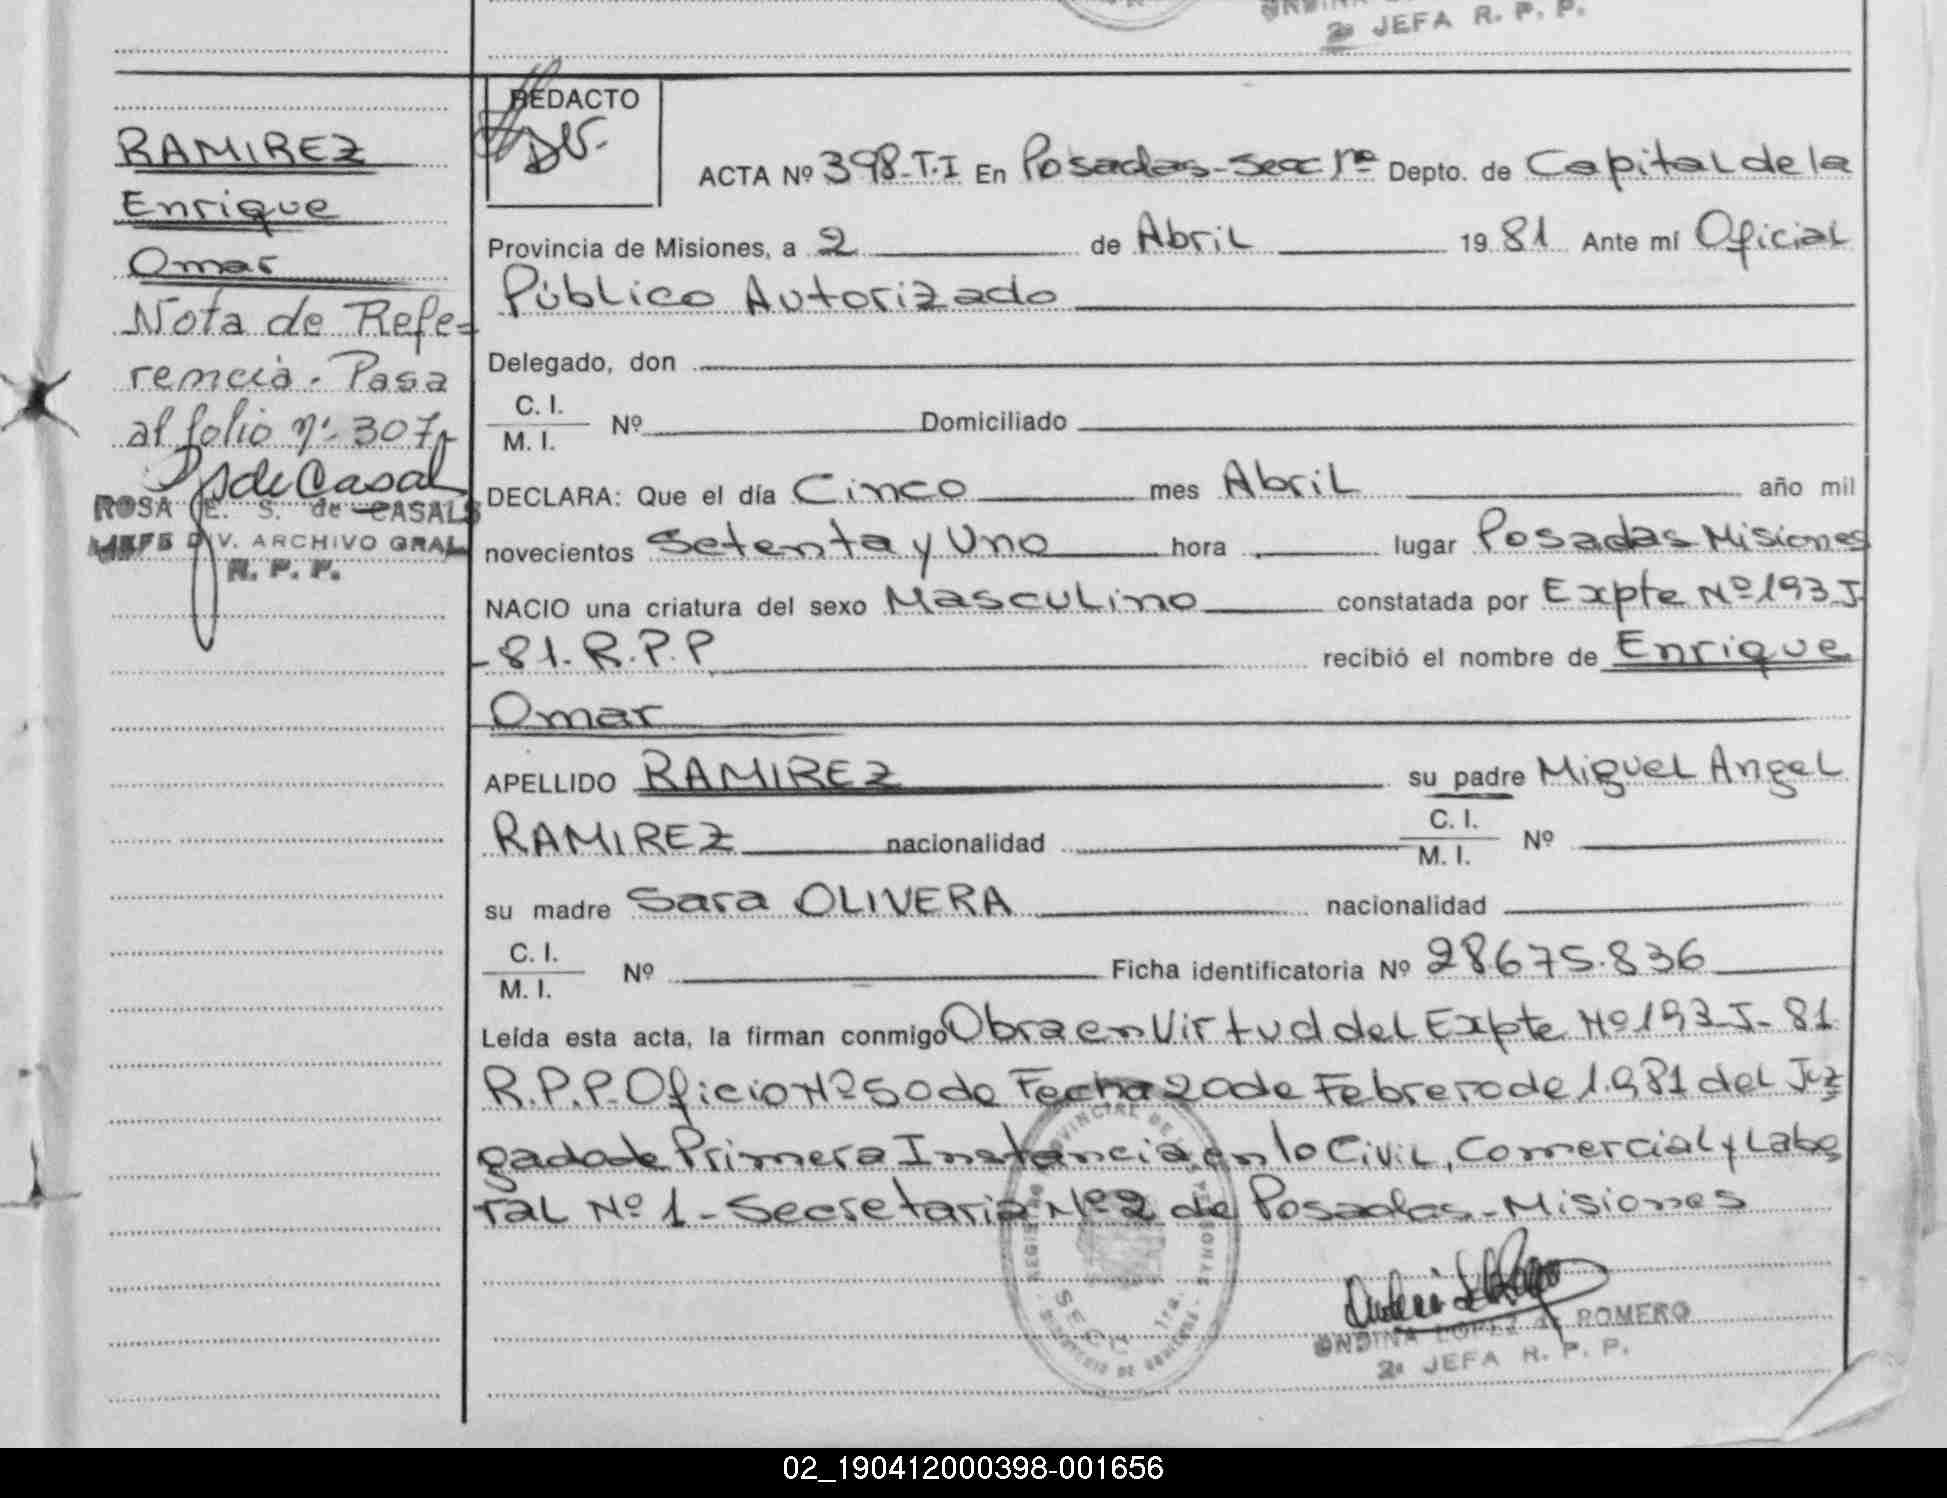 2ª JEFA R. P. P.
RAMIREZ
Enrique
Omar
Nota de Refe=
rencia. Pasa
al folio nº 307
de Casal
ROSA E. S. de CASALS
JEFE DIV. ARCHIVO GRAL
R. P. P.
REDACTO
ACTA Nº 398-T.I En Posadas-Secc 1ra Depto. de Capital de la
Provincia de Misiones, a 2 de Abril 19 81 Ante mí Oficial
Público Autorizado
Delegado, don
C. I.
M. I.
Nº Domiciliado
DECLARA: Que el día Cinco mes Abril año mil
novecientos Setenta y Uno hora lugar Posadas Misiones
NACIO una criatura del sexo Masculino constatada por Expte Nº 193 J
-81. R.P.P recibió el nombre de Enrique
Omar
APELLIDO RAMIREZ su padre Miguel Angel
RAMIREZ nacionalidad C. I. M. I. Nº
su madre Sara OLIVERA nacionalidad
C. I.
M. I.
Nº Ficha identificatoria Nº 28675.836
Leída esta acta, la firman conmigo Obra en Virtud del Expte Nº 193-J-81
R.P.P. Oficio Nº 50 de Fecha 20 de Febrero de 1.981 del Juz
gado de Primera Instancia en lo Civil, Comercial y Labo
ral Nº 1-Secretaria Nº 2 de Posadas-Misiones
SECC. 1ra.
ONDINA LOPEZ de ROMERO
2ª JEFA R. P. P.
02_190412000398-001656